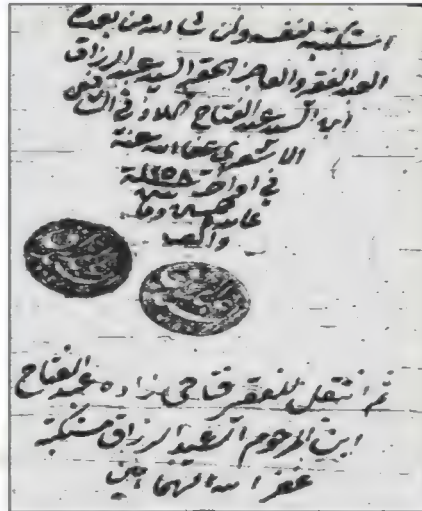 استكتبه لنفسه ولمن شاء الله من بعده
العبد الفقير والعاجز الحقير السيد عبد الرزاق
ابن السيد عبد الفتاح اللاذقي الشافعي
الاشعري عفا الله عنه
في اواخر سنة ١٢٥٨
ثمانية وخمسين
والف
ثم انتقل للفقير فتاحي زاده عبد الفتاح
ابن المرحوم السيد عبد الرزاق مستكتبه
غفر الله لهما امين